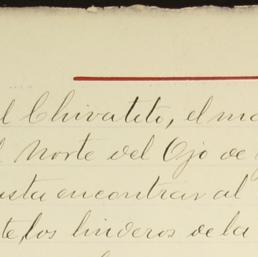 l Chivatito, el ma
l Norte del Ojo de
asta encontrar al
te, los linderos de la